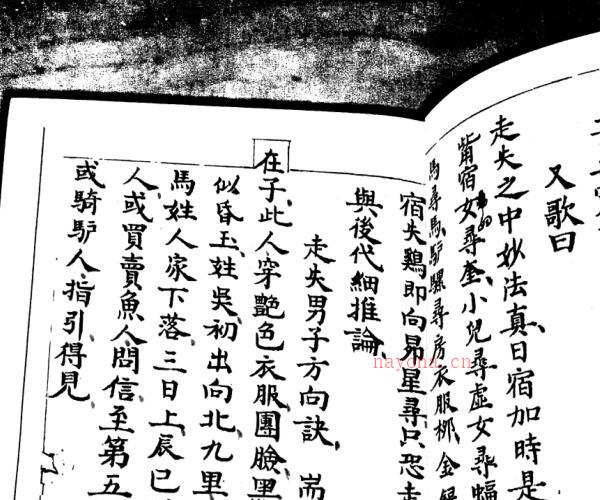 又歌曰
走失之中妙法真日宿加時是
觜宿女尋奎小兒尋虛女尋
馬尋馬驴騾尋房衣服柳金
宿失鷄即向昴星尋只恐走
與後代細推論
走失男子方向訣
在子此人穿艷色衣服團臉黑
似昏玉姓吳初出向北九里
馬姓人家下落三日上辰巳
人或買賣魚人問信至第五
或騎驴人指引得見
nayona.cn